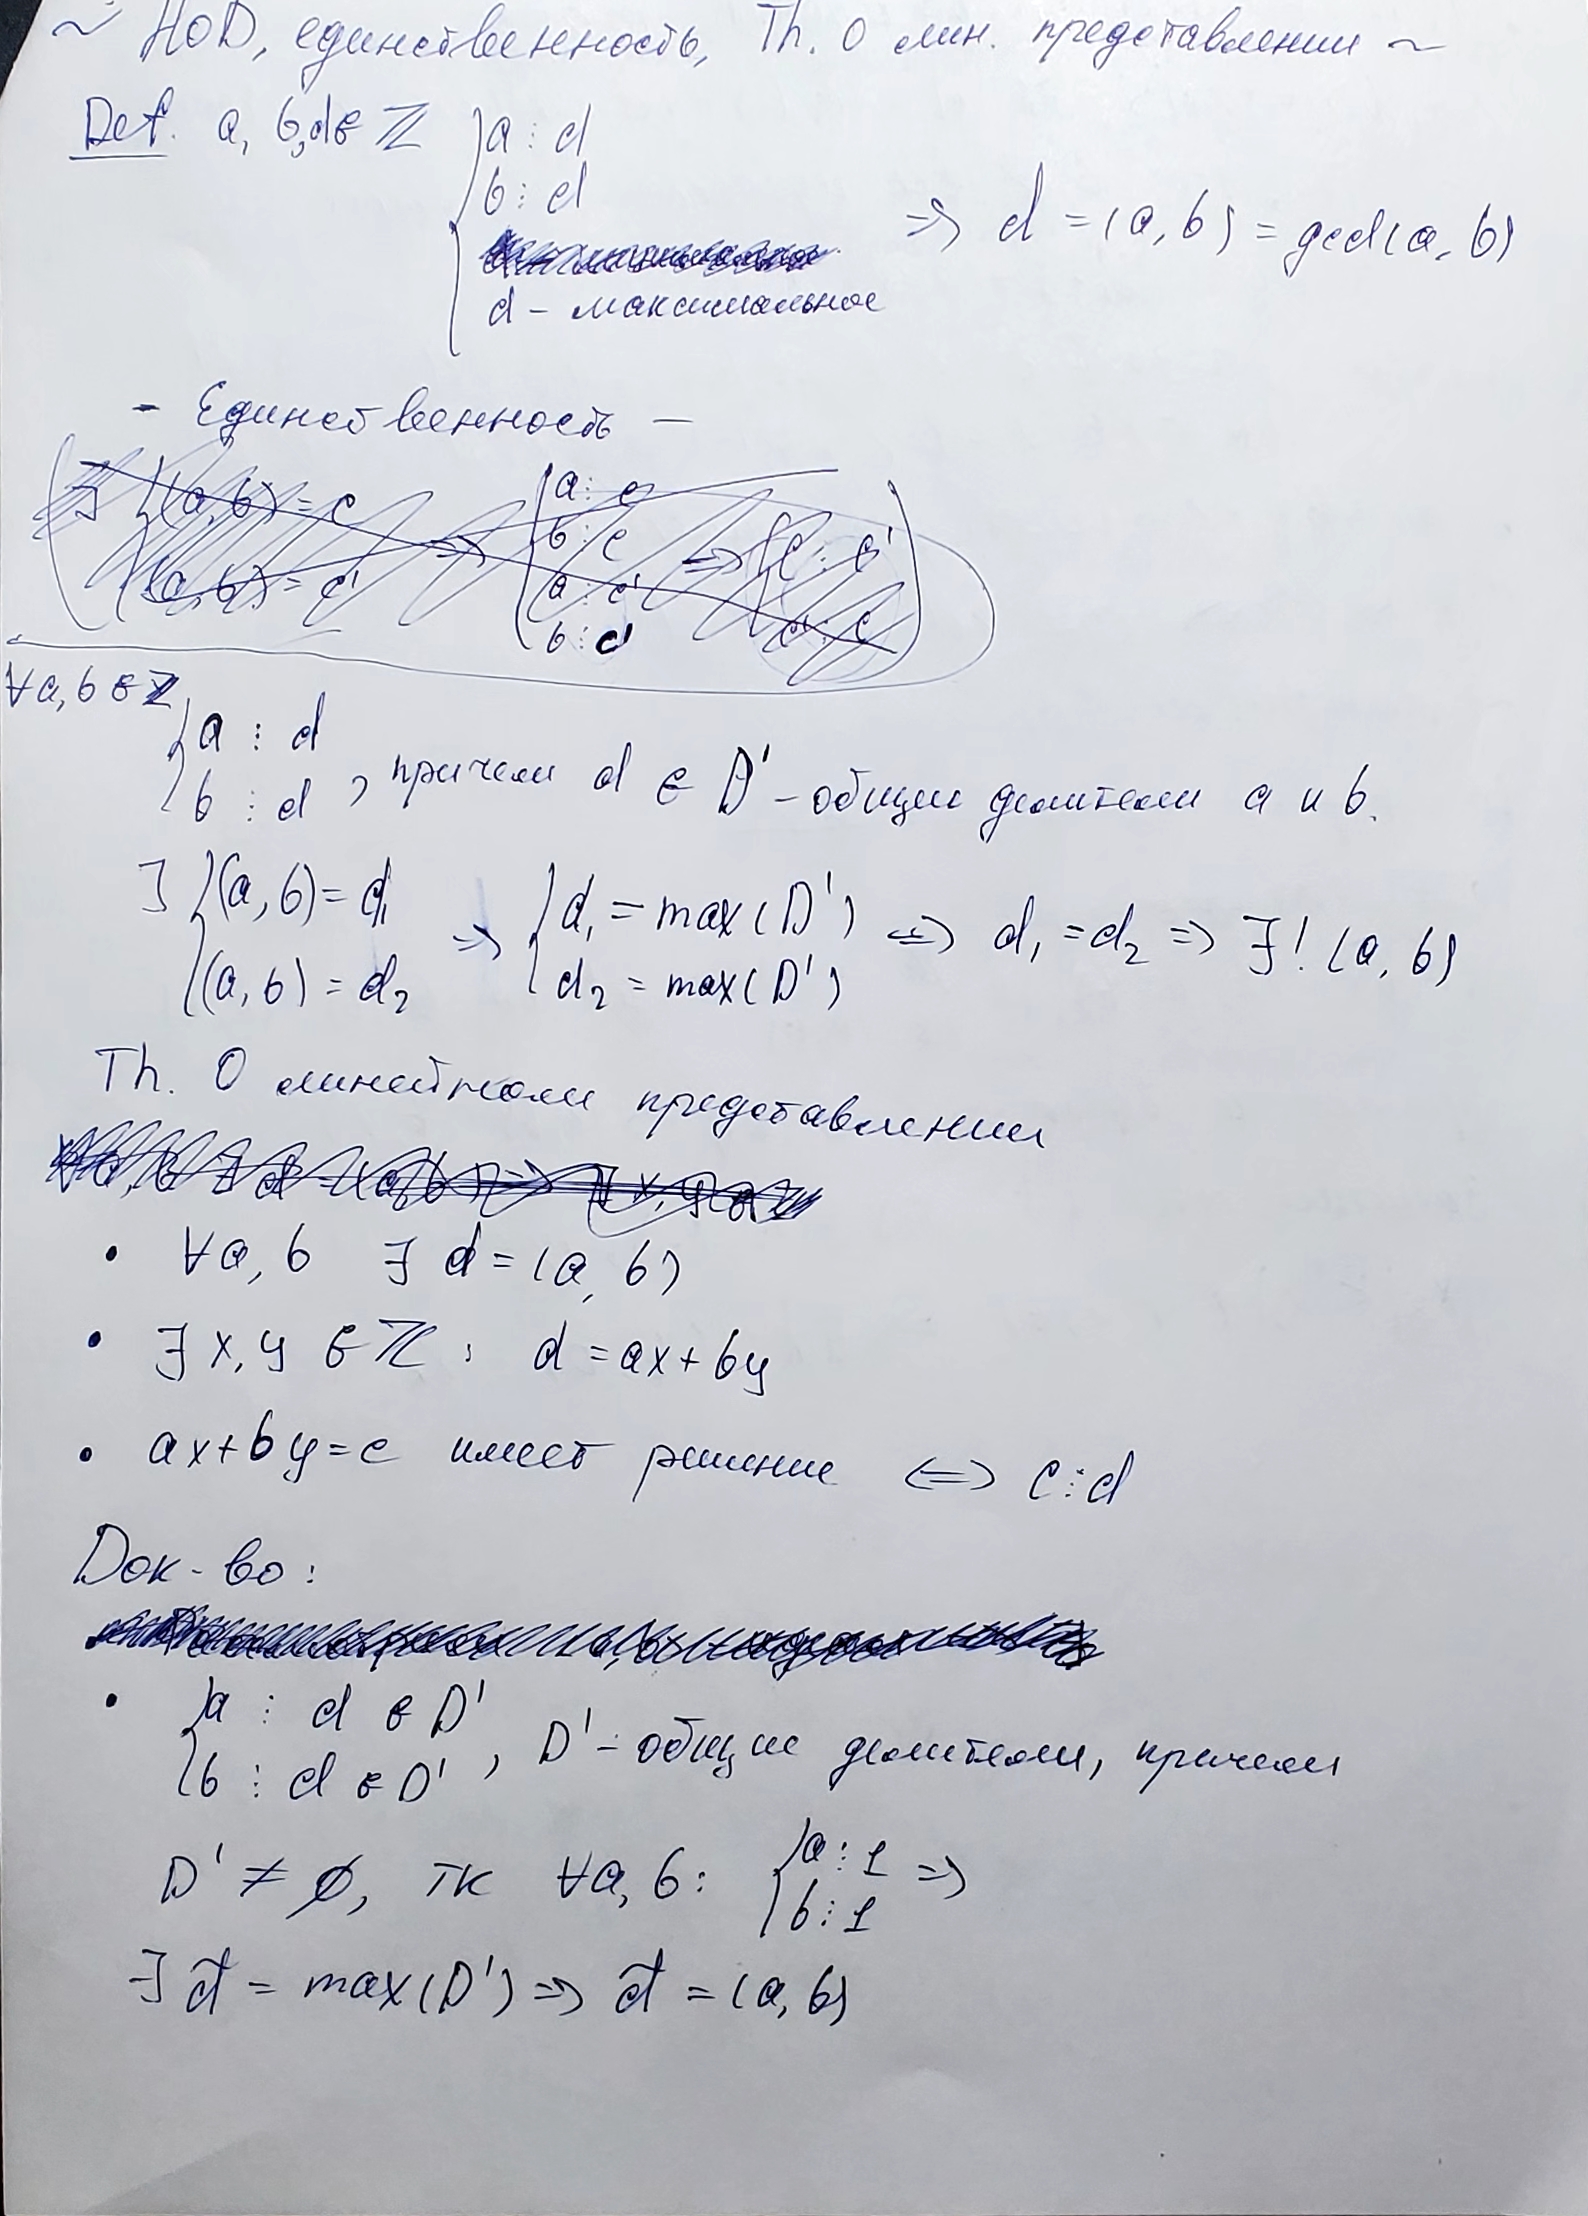 ~ НОД, единственность, Th. О лин. представлении ~
Def. a, b, d ∈ ℤ { a ⋮ d
b ⋮ d
d – максимальное
⇒ d = (a, b) = gcd(a, b)
- Единственность -
∃ { (a, b) = c
(a, b) = c'
⇒ { a ⋮ c
b ⋮ c
a ⋮ c'
b ⋮ c'
⇒ { c ⋮ c'
c' ⋮ c
∀a, b ∈ ℤ
{ a ⋮ d
b ⋮ d , причем d ∈ D' – общие делители a и b.
∃ { (a, b) = d₁
(a, b) = d₂
⇒ { d₁ = max(D')
d₂ = max(D')
⇒ d₁ = d₂ ⇒ ∃! (a, b)
Th. О линейном представлении
• ∀a, b ∃ d = (a, b)
• ∃ x, y ∈ ℤ : d = ax + by
• ax + by = c имеет решение ⇔ c ⋮ d
Док-во:
• { a ⋮ d ∈ D'
b ⋮ d ∈ D' , D' – общие делители, причем
D' ≠ ∅, тк ∀a, b: { a ⋮ 1
b ⋮ 1 ⇒
∃ d̃ = max(D') ⇒ d̃ = (a, b)